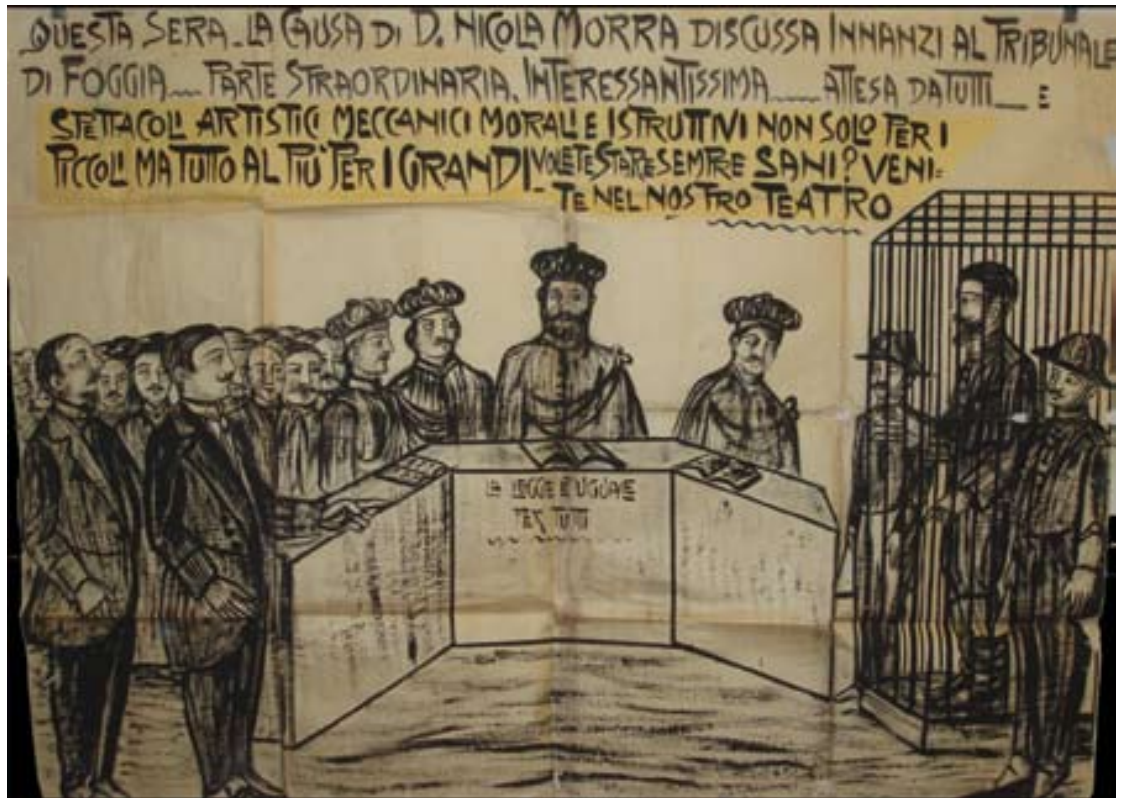 QUESTA SERA_LA CAUSA DI D. NICOLA MORRA DISCUSSA INNANZI AL TRIBUNALE
DI FOGGIA__ PARTE STRAORDINARIA. INTERESSANTISSIMA___ ATTESA DA TUTTI__ E
SPETTACOLI ARTISTICI MECCANICI MORALI E ISTRUTTIVI NON SOLO PER I
PICCOLI MA TUTTO AL PIU' PER I GRANDI_ VOLETE STARE SEMPRE SANI? VENI=
TE NEL NOSTRO TEATRO
LA LEGGE E UGUALE
PER TUTTI